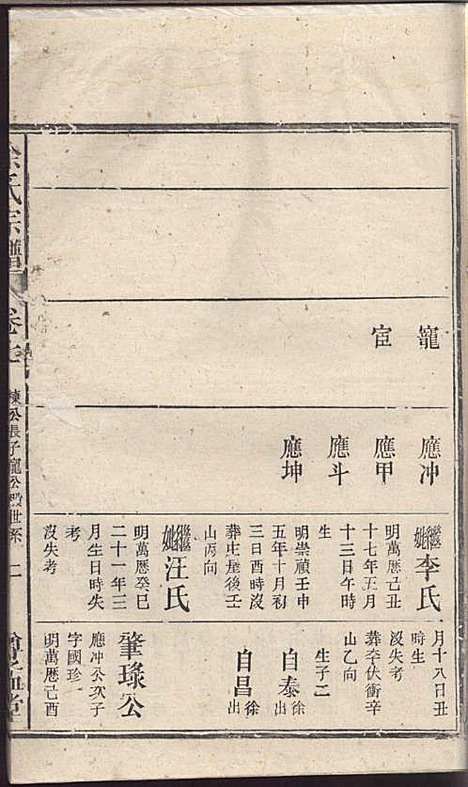 寵
宦
應冲
應甲
應斗
應坤
繼妣李氏
明萬曆己丑
十七年五月
十三日午時
生
明崇禎壬申
五年十月初
三日酉時沒
葬屯壠後壬
山丙向
繼妣汪氏
明萬曆癸巳
二十一年三
月生日時失
考
沒失考
月十八日丑
時生
沒失考
葬李伏衝辛
山乙向
生子二
自泰徐出
自昌徐出
肇琭公
應冲公次子
字國珍一
明萬曆己酉
氏宗譜
卷
棟公長子寵公
世系
二
堂